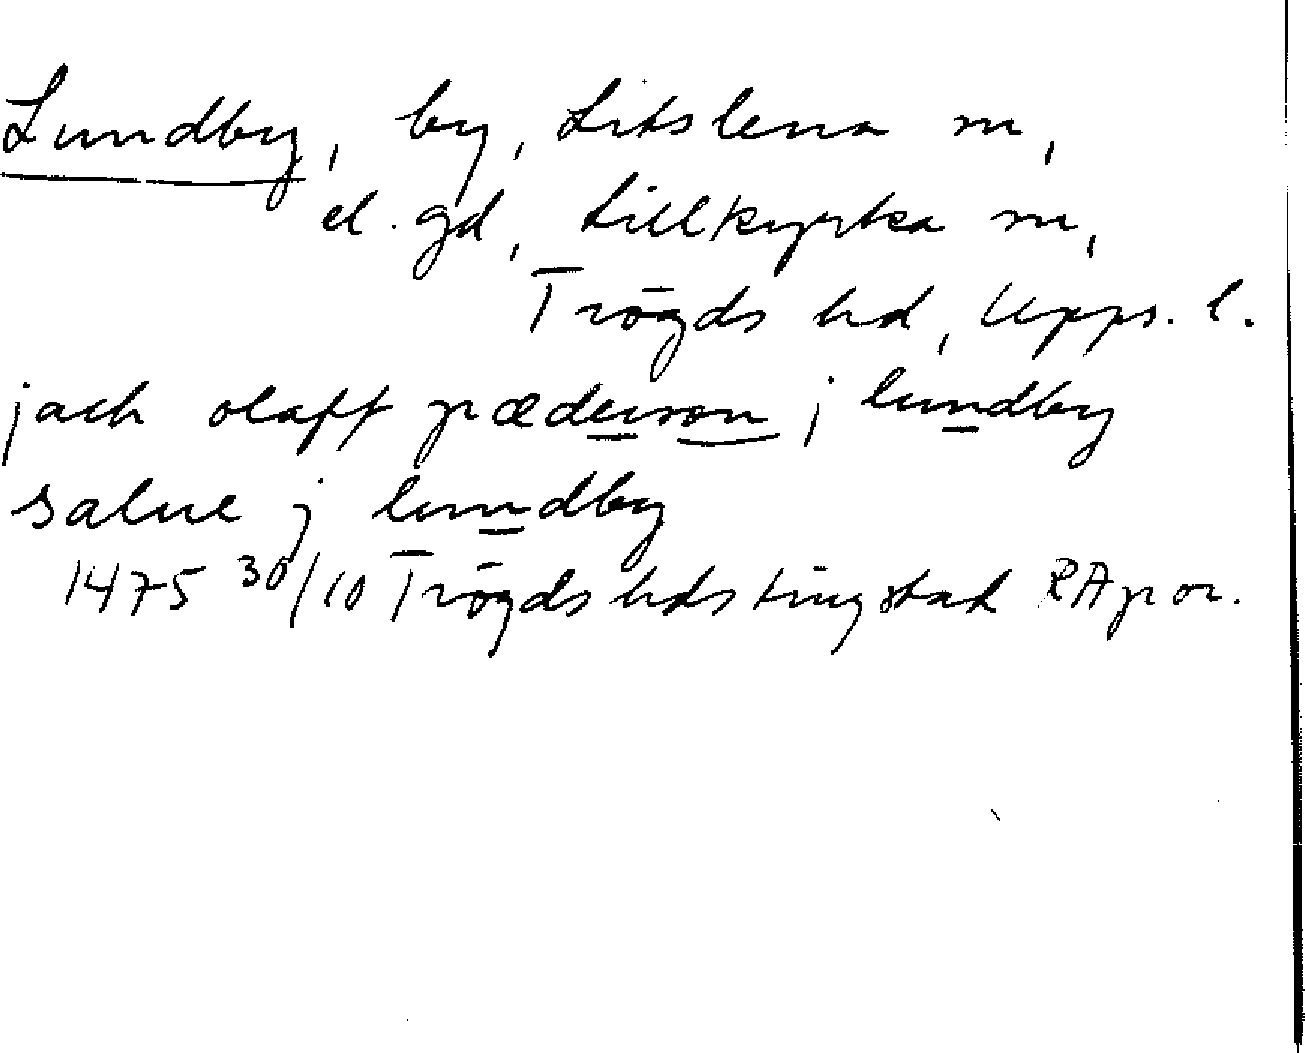 Lundby, by, Litslena sn,
el. gd, Lillkyrka sn,
Trögds hd, Upps. l.
jach olaff pæderson j lundby
salue j lundby
1475 30/10 Trögds hds tingstad RAp or.